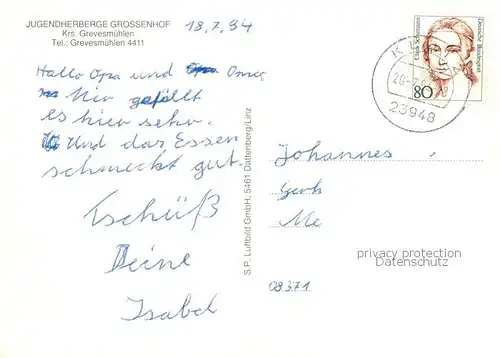 JUGENDHERBERGE GROSSENHOF
Krs. Grevesmühlen
Tel.: Grevesmühlen 4411
18.7.94
Hallo Opa und Oma
Mir gefällt
es hier sehr.
Und das Essen
schmeckt gut.
Tschüß
Deine
Isabel
S.P. Luftbild GmbH, 5461 Dattenberg/Linz
Clara Schumann
Deutsche Bundespost
80
23948
Johannes
Gerh
Me
privacy protection
Datenschutz
08371